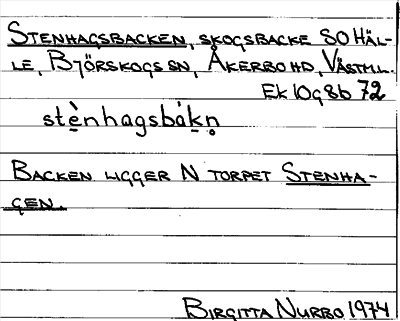 STENHAGSBACKEN, SKOGSBACKE SO HÄL-
LE, BJÖRSKOGS SN, ÅKERBO HD, VÄSTML.
EK 10g8b 72
stè̱nhagsbàk̠n̥
BACKEN LIGGER N TORPET STENHA-
GEN.
BIRGITTA NURBO 1974